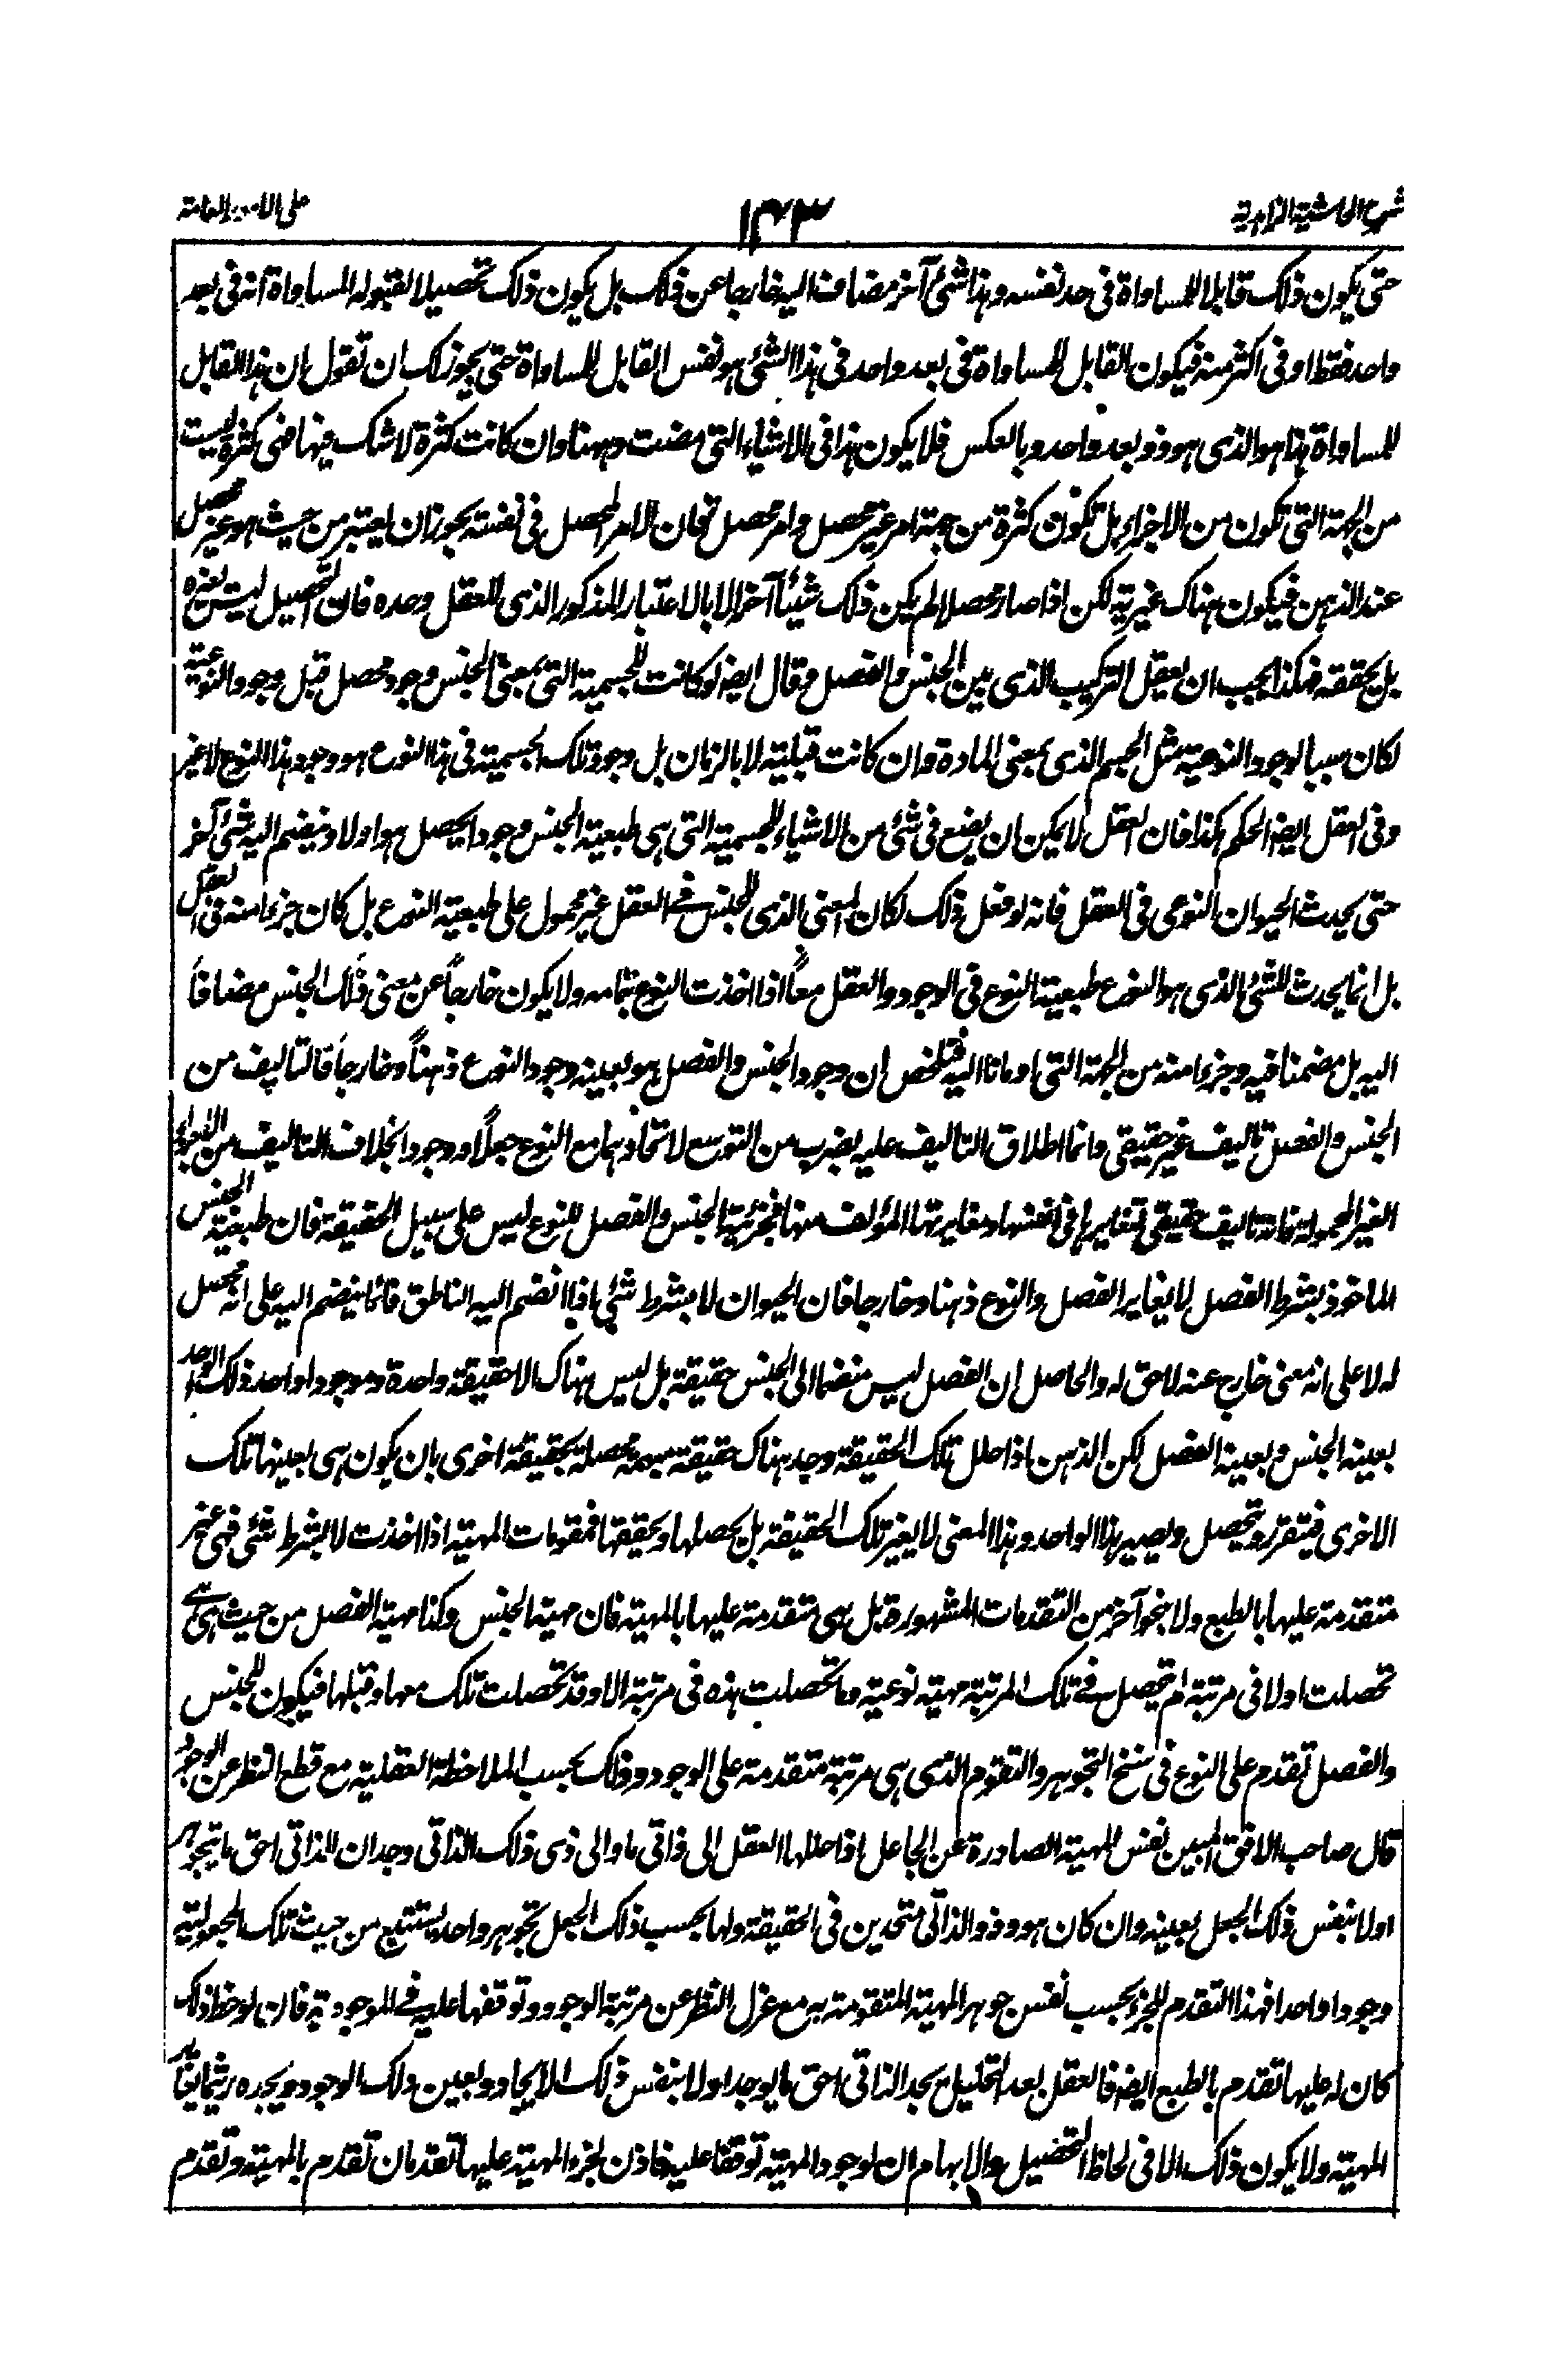 شرح الحاشية الزاهدية
١٤٣
على الامور العامة
حتى يكون ذلك قابلا للمساواة فى حد نفسه وهذا شئ آخر مضاف اليه خارجا عن ذلك بل يكون ذلك تحصيلا لقبوله المساواة انه فى بعد
واحد فقط او فى اكثر منه فيكون القابل للمساواة فى بعد واحد فى هذا الشئ هو نفس القابل للمساواة حتى يجوز لك ان تقول ان هذا القابل
للمساواة هذا هو الذى هو ذو بعد واحد وبالعكس فلا يكون هذا فى الاشياء التى مضت وههنا وان كانت كثرة لا شك فيها فهى كثرة ليست
من الجهة التى تكون من الاجزاء بل تكون كثرة من جهة امر غير محصل وامر محصل فان الامر المحصل فى نفسه يجوز ان يعتبر من حيث هو غير محصل
عند الذهن فيكون هناك غيرية لكن اذا صار محصلا لم يكن ذلك شيئا آخر الا بالاعتبار المذكور الذى للعقل وحده فان التحصيل ليس يغيره
بل يحققه فهكذا يجب ان يعقل التركيب الذى بين الجنس والفصل وقال ايضا لو كانت للجسمية التى بمعنى الجنس وجود محصل قبل وجود النوعية
لكان سببا لوجود النوعية مثل الجسم الذى بمعنى المادة وان كانت قبلية لا بالزمان بل وجود تلك الجسمية فى هذا النوع هو وجود هذا النوع لا غير
وفى العقل ايضا الحكم هكذا فان العقل لا يمكن ان يضع فى شئ من الاشياء للجسمية التى هى طبيعة الجنس وجودا يحصل هو اولا وينضم اليه شئ آخر
حتى يحدث الحيوان النوعى فى العقل فانه لو فعل ذلك لكان المعنى الذى للجنس فى العقل غير محمول على طبيعة النوع بل كان جزءا منه فى العقل
بل انما يحدث للشئ الذى هو النوع طبيعة النوع فى الوجود والعقل معًا اذا اخذت النوع بتمامه ولا يكون خارجاً عن معنى ذلك الجنس مضافاً
اليه بل مضمنا فيه وجزءا منه من الجهة التى اومانا اليه فتلخص ان وجود الجنس والفصل هو بعينه وجود النوع ذهناً وخارجاً فالتاليف من
الجنس والفصل تاليف غير حقيقى وانما اطلاق التاليف عليه بضرب من التوسع لاتحادهما مع النوع جعلاً ووجودا بخلاف التاليف من الاجزاء
الغير المحمولة فانه تاليف حقيقى لتغايرها فى انفسها ومغايرتها المؤلف منها فجزئية الجنس والفصل للنوع ليس على سبيل الحقيقة فان طبيعة الجنس
الماخوذ بشرط الفصل لا يغاير الفصل والنوع ذهنا وخارجا فان الحيوان لا بشرط شئ اذا انضم اليه الناطق فانما ينضم اليه على انه محصل
له لا على انه معنى خارج عنه لاحق له والحاصل ان الفصل ليس منضما الى الجنس حقيقة بل ليس هناك الا حقيقة واحدة وموجودا واحد ذلك الواحد
بعينه الجنس وبعينه الفصل لكن الذهن اذا حلل تلك الحقيقة وجد هناك حقيقة مبهمة محصلة بحقيقة اخرى بان يكون هى بعينها تلك
الاخرى فيتقرر وتحصل ويصير هذا الواحد وهذا المعنى لا يغير تلك الحقيقة بل يحصلها ويحققها فمقومات المهية اذا اخذت لا بشرط شئ فهى غير
متقدمة عليها بالطبع ولا بنحو آخر من التقدمات المشهورة بل هى متقدمة عليها بالمهية فان مهية الجنس وكذا مهية الفصل من حيث هى هى
تحصلت اولا فى مرتبة لم تحصل فى تلك المرتبة مهية نوعية وما تحصلت هذه فى مرتبة الا وقد تحصلت تلك معها وقبلها فيكون للجنس
والفصل تقدم على النوع فى سنخ التجوهر والتقوم التى هى مرتبة متقدمة على الوجود وذلك بحسب الملاحظة العقلية مع قطع النظر عن الوجود
قال صاحب الافق المبين نفس المهية الصادرة عن الجاعل اذا حللها العقل الى ذاتى ما والى ذى ذلك الذاتى وجد ان الذاتى احق ما يتجوهر
اولا بنفس ذلك الجعل بعينه وان كان هو وذو الذاتى متحدين فى الحقيقة ولها بحسب ذلك الجعل تجوهر واحد يستتبع من حيث تلك المجعولية
وجودا واحدا فهذا التقدم للجزء بحسب نفس جوهر المهية المتقومة به مع عزل النظر عن مرتبة الوجود وتوقفها عليه فى الموجودية فان لوحظ ذلك
كان له عليها تقدم بالطبع ايضا فالعقل بعد التحليل يجد الذاتى احق ما يوجد اولا بنفس ذلك الايجاد وبعين ذلك الوجود ويجده
المهية ولا يكون ذلك الا فى لحاظ التحصيل والابهام ان لوجود المهية توقفا عليه فاذن لجزء المهية عليها تقدمان تقدم بالمهية وتقدم